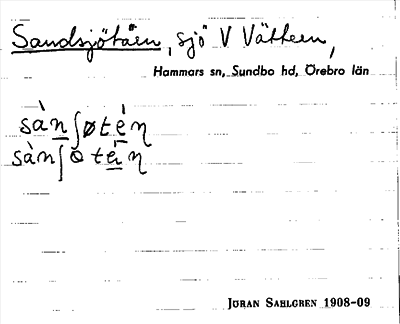 Sandsjötåen, sjö V Vättern,
Hammars sn, Sundbo hd, Örebro län
sànʃøtèn
sànʃo tèn
JÖRAN SAHLGREN 1908-09